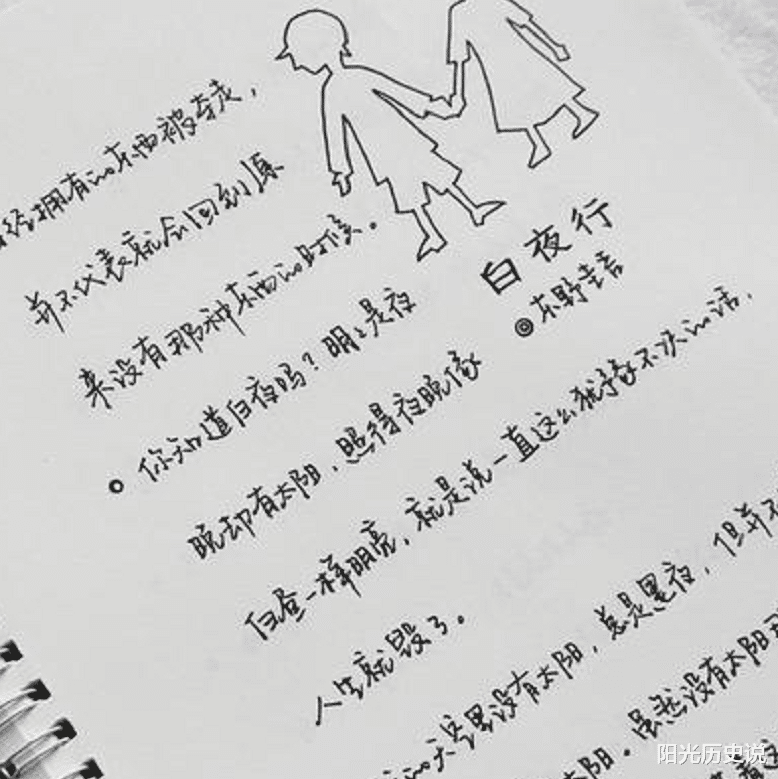 经拥有的东西被夺走，
并不代表就会回到原
来没有那种东西的时候。
白夜行
◎东野圭吾
○你知道白夜吗？明明是夜
晚却有太阳，照得夜晚像
白昼一样明亮，就是说一直这么犹豫不决的话，
人生就毁了。
的天空里没有太阳，总是黑夜，但并不
太阳。虽然没有太阳
阳光历史说